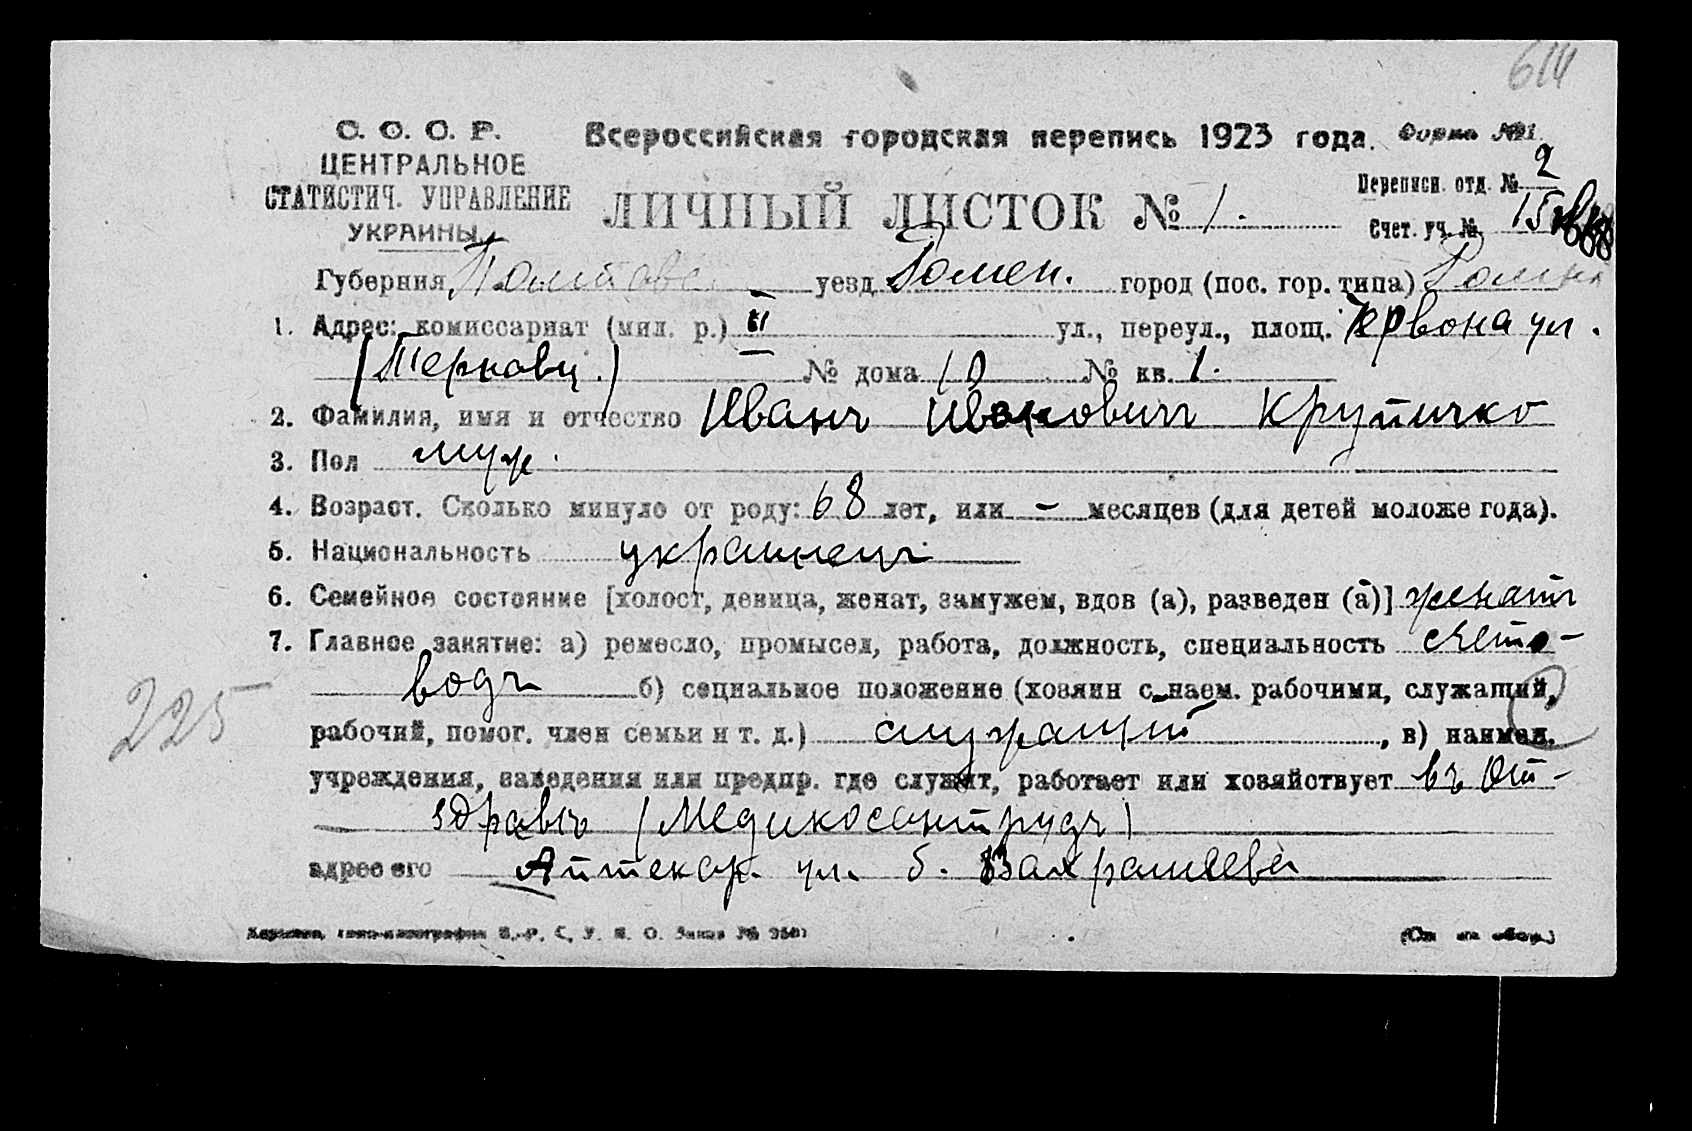 614
С. С. С. Р.
ЦЕНТРАЛЬНОЕ
СТАТИСТИЧ. УПРАВЛЕНИЕ
УКРАИНЫ
Всероссийская городская перепись 1923 года. Форма №1
ЛИЧНЫЙ ЛИСТОК № 1.
Переписн. отд. № 2
Счет. уч. № 15
Губерния Полтавс. уезд Ромен. город (пос. гор. типа) Ромны
1. Адрес: комиссариат (мил. р.) III ул., переул., площ. Червона ул.
(Терновц.) № дома 10 № кв. 1.
2. Фамилия, имя и отчество Иванъ Ивановичъ Крупичко
3. Пол муж.
4. Возраст. Сколько минуло от роду: 68 лет, или – месяцев (для детей моложе года).
5. Национальность украинецъ
6. Семейное состояние [холост, девица, женат, замужем, вдов (а), разведен (а)] женатъ
7. Главное занятие: а) ремесло, промысел, работа, должность, специальность счето-
водъ б) социальное положение (хозяин с наем. рабочими, служащий,
рабочий, помог. член семьи и т. д.) служащий, в) наимен.
учреждения, заведения или предпр. где служит, работает или хозяйствует въ От-
здравъ (Медикосантрудъ)
адрес его Аптекар. ул. б. Вахрамеева
225
(См. на обор.)